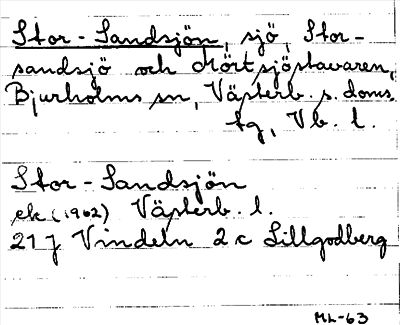 Stor-Sandsjön, sjö, Stor-
sandsjö och Mörtsjöstavaren,
Bjurholms sn, Västerb. s. doms.
tg, Vb. l.
Stor-Sandsjön
ek (1962) Västerb. l.
21 J Vindeln 2 c Lillgodberg
ML-63